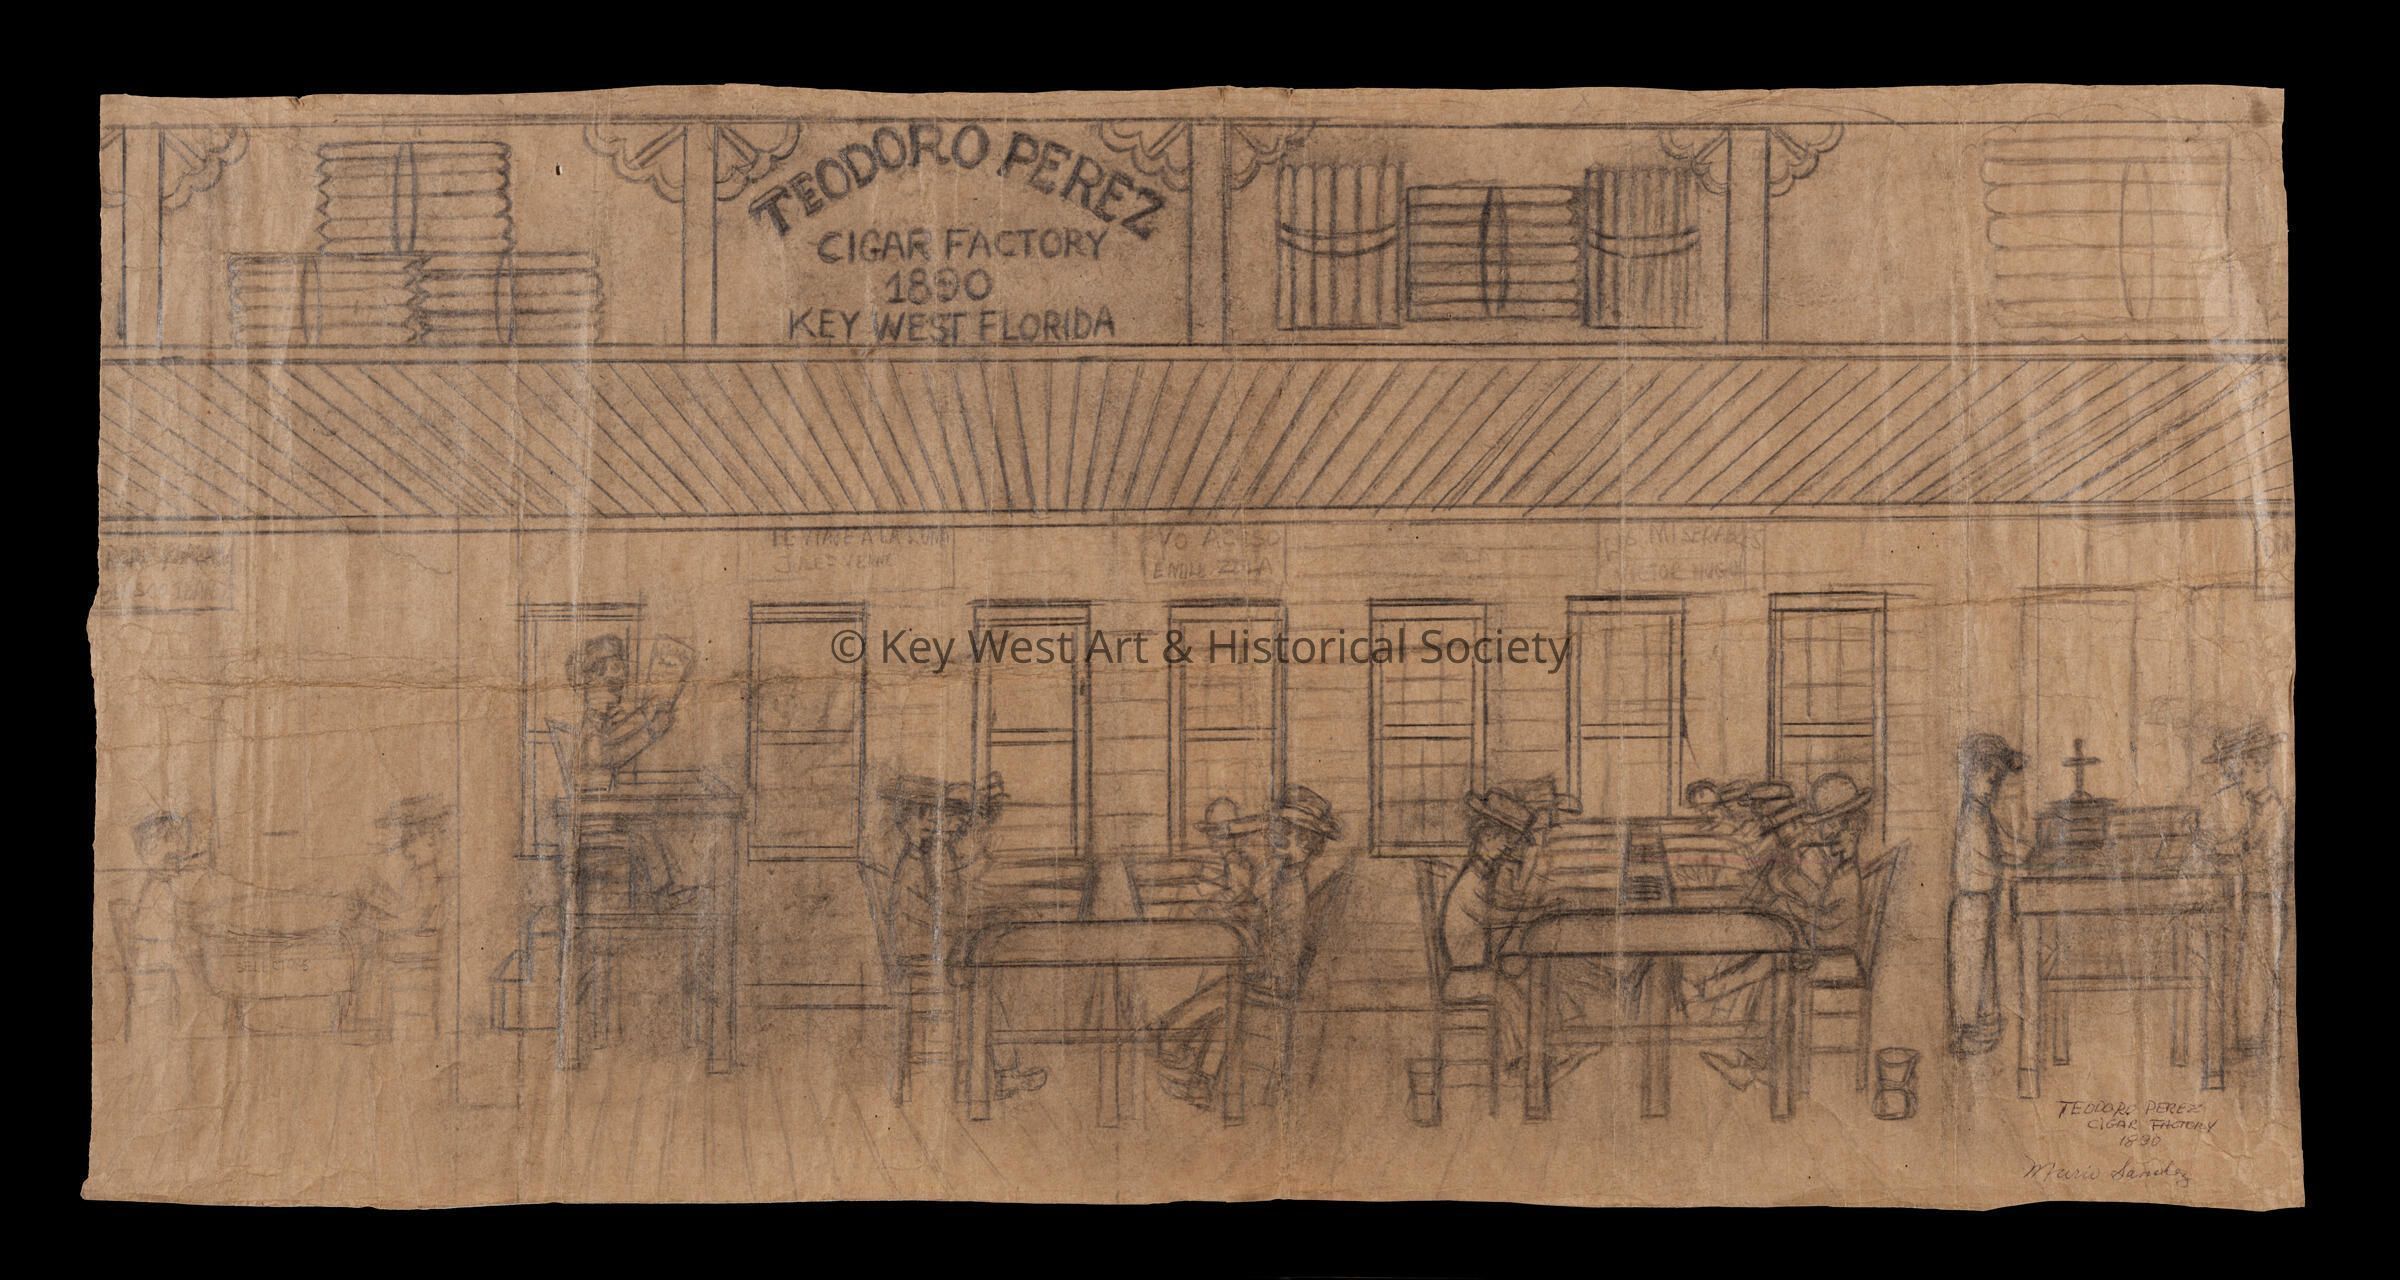 TEODORO PEREZ
CIGAR FACTORY
1890
KEY WEST FLORIDA
VIAJE A LA LUNA
JULES VERNE
YO ACUSO
EMILE ZOLA
MISERABLES
VICTOR HUGO
© Key West Art & Historical Society
SELECTORS
TEODORO PEREZ
CIGAR FACTORY
1890
Mario Sanchez